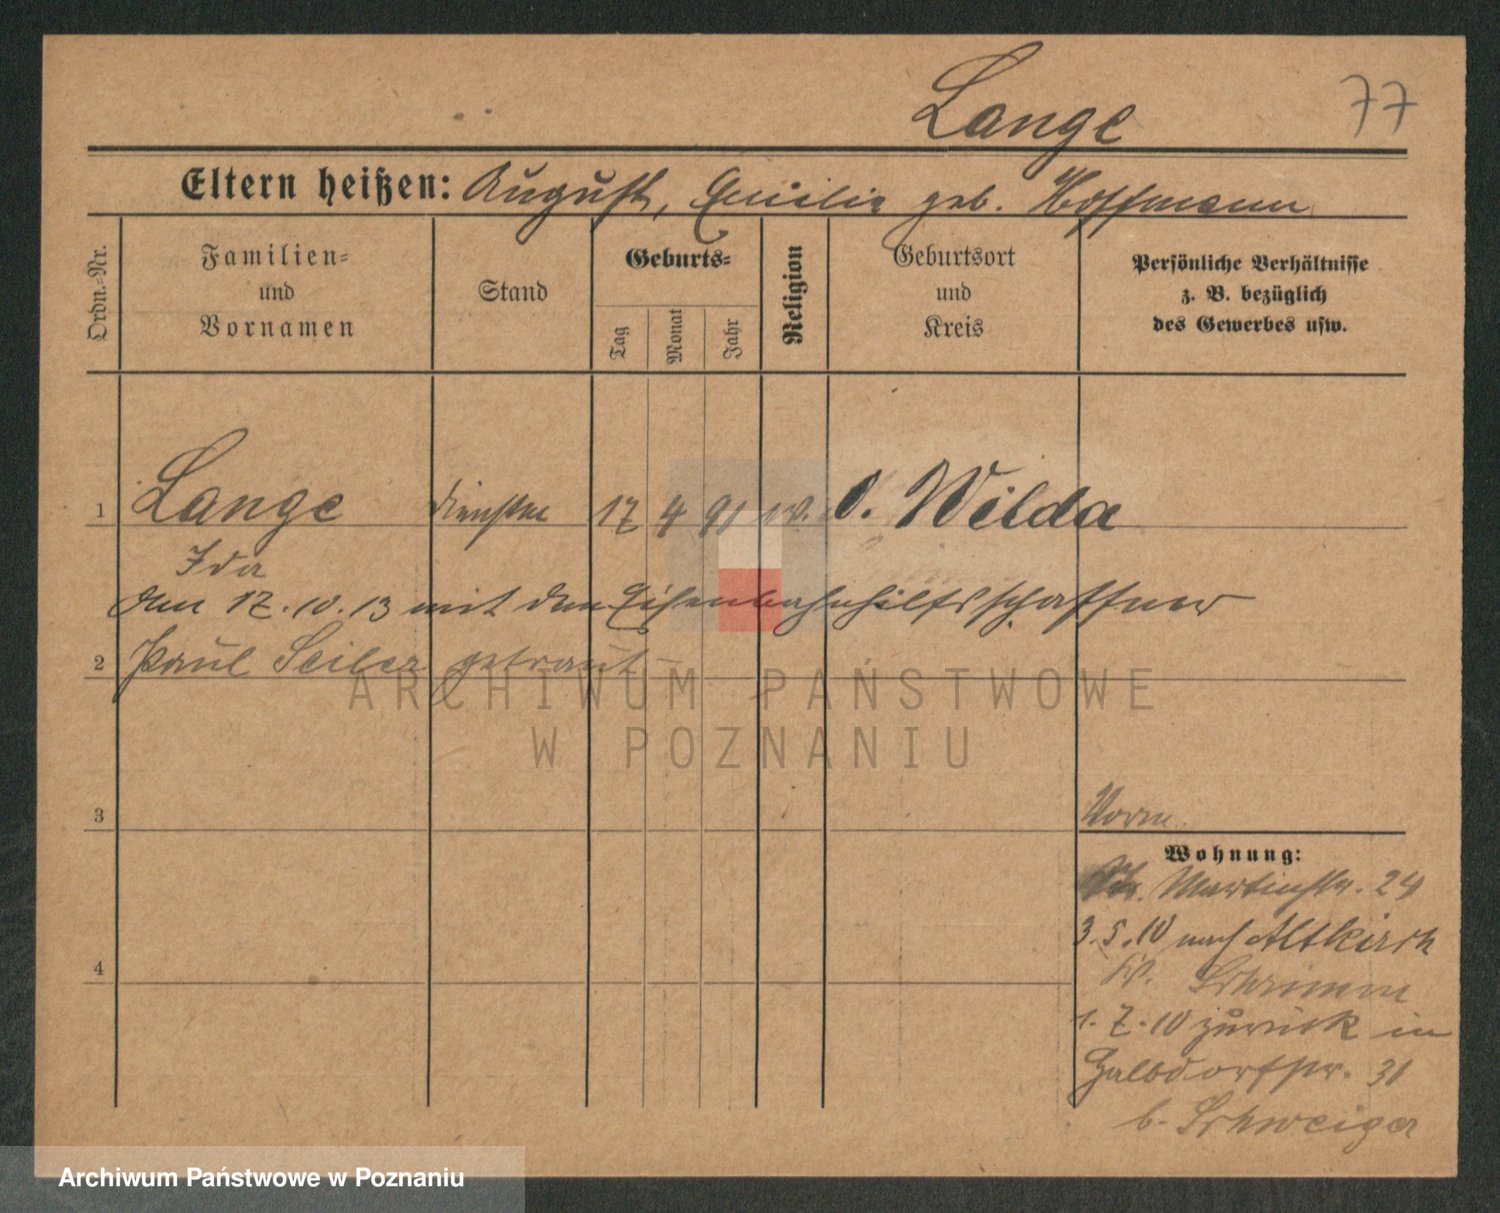 Lange
77
Eltern heißen: August, Emilie geb. Hoffmann
Ordn.-Nr.
Familien-
und
Vornamen
Stand
Geburts-
Tag
Monat
Jahr
Religion
Geburtsort
und
Kreis
Persönliche Verhältnisse
z. B. bezüglich
des Gewerbes usw.
1 Lange 17 4 91 O. Wilda
Ida
den 17.10.13 mit dem Eisenbahnhilfsschaffner
2 Paul Seiler getraut
3
4
Wohnung:
Martinstr. 24
3.5.10 nach Altkirch
Kr. Schrimm
1.7.10 zurück in
Halbdorfstr. 31
b. Schweiger
ARCHIWUM PAŃSTWOWE
W POZNANIU
Archiwum Państwowe w Poznaniu